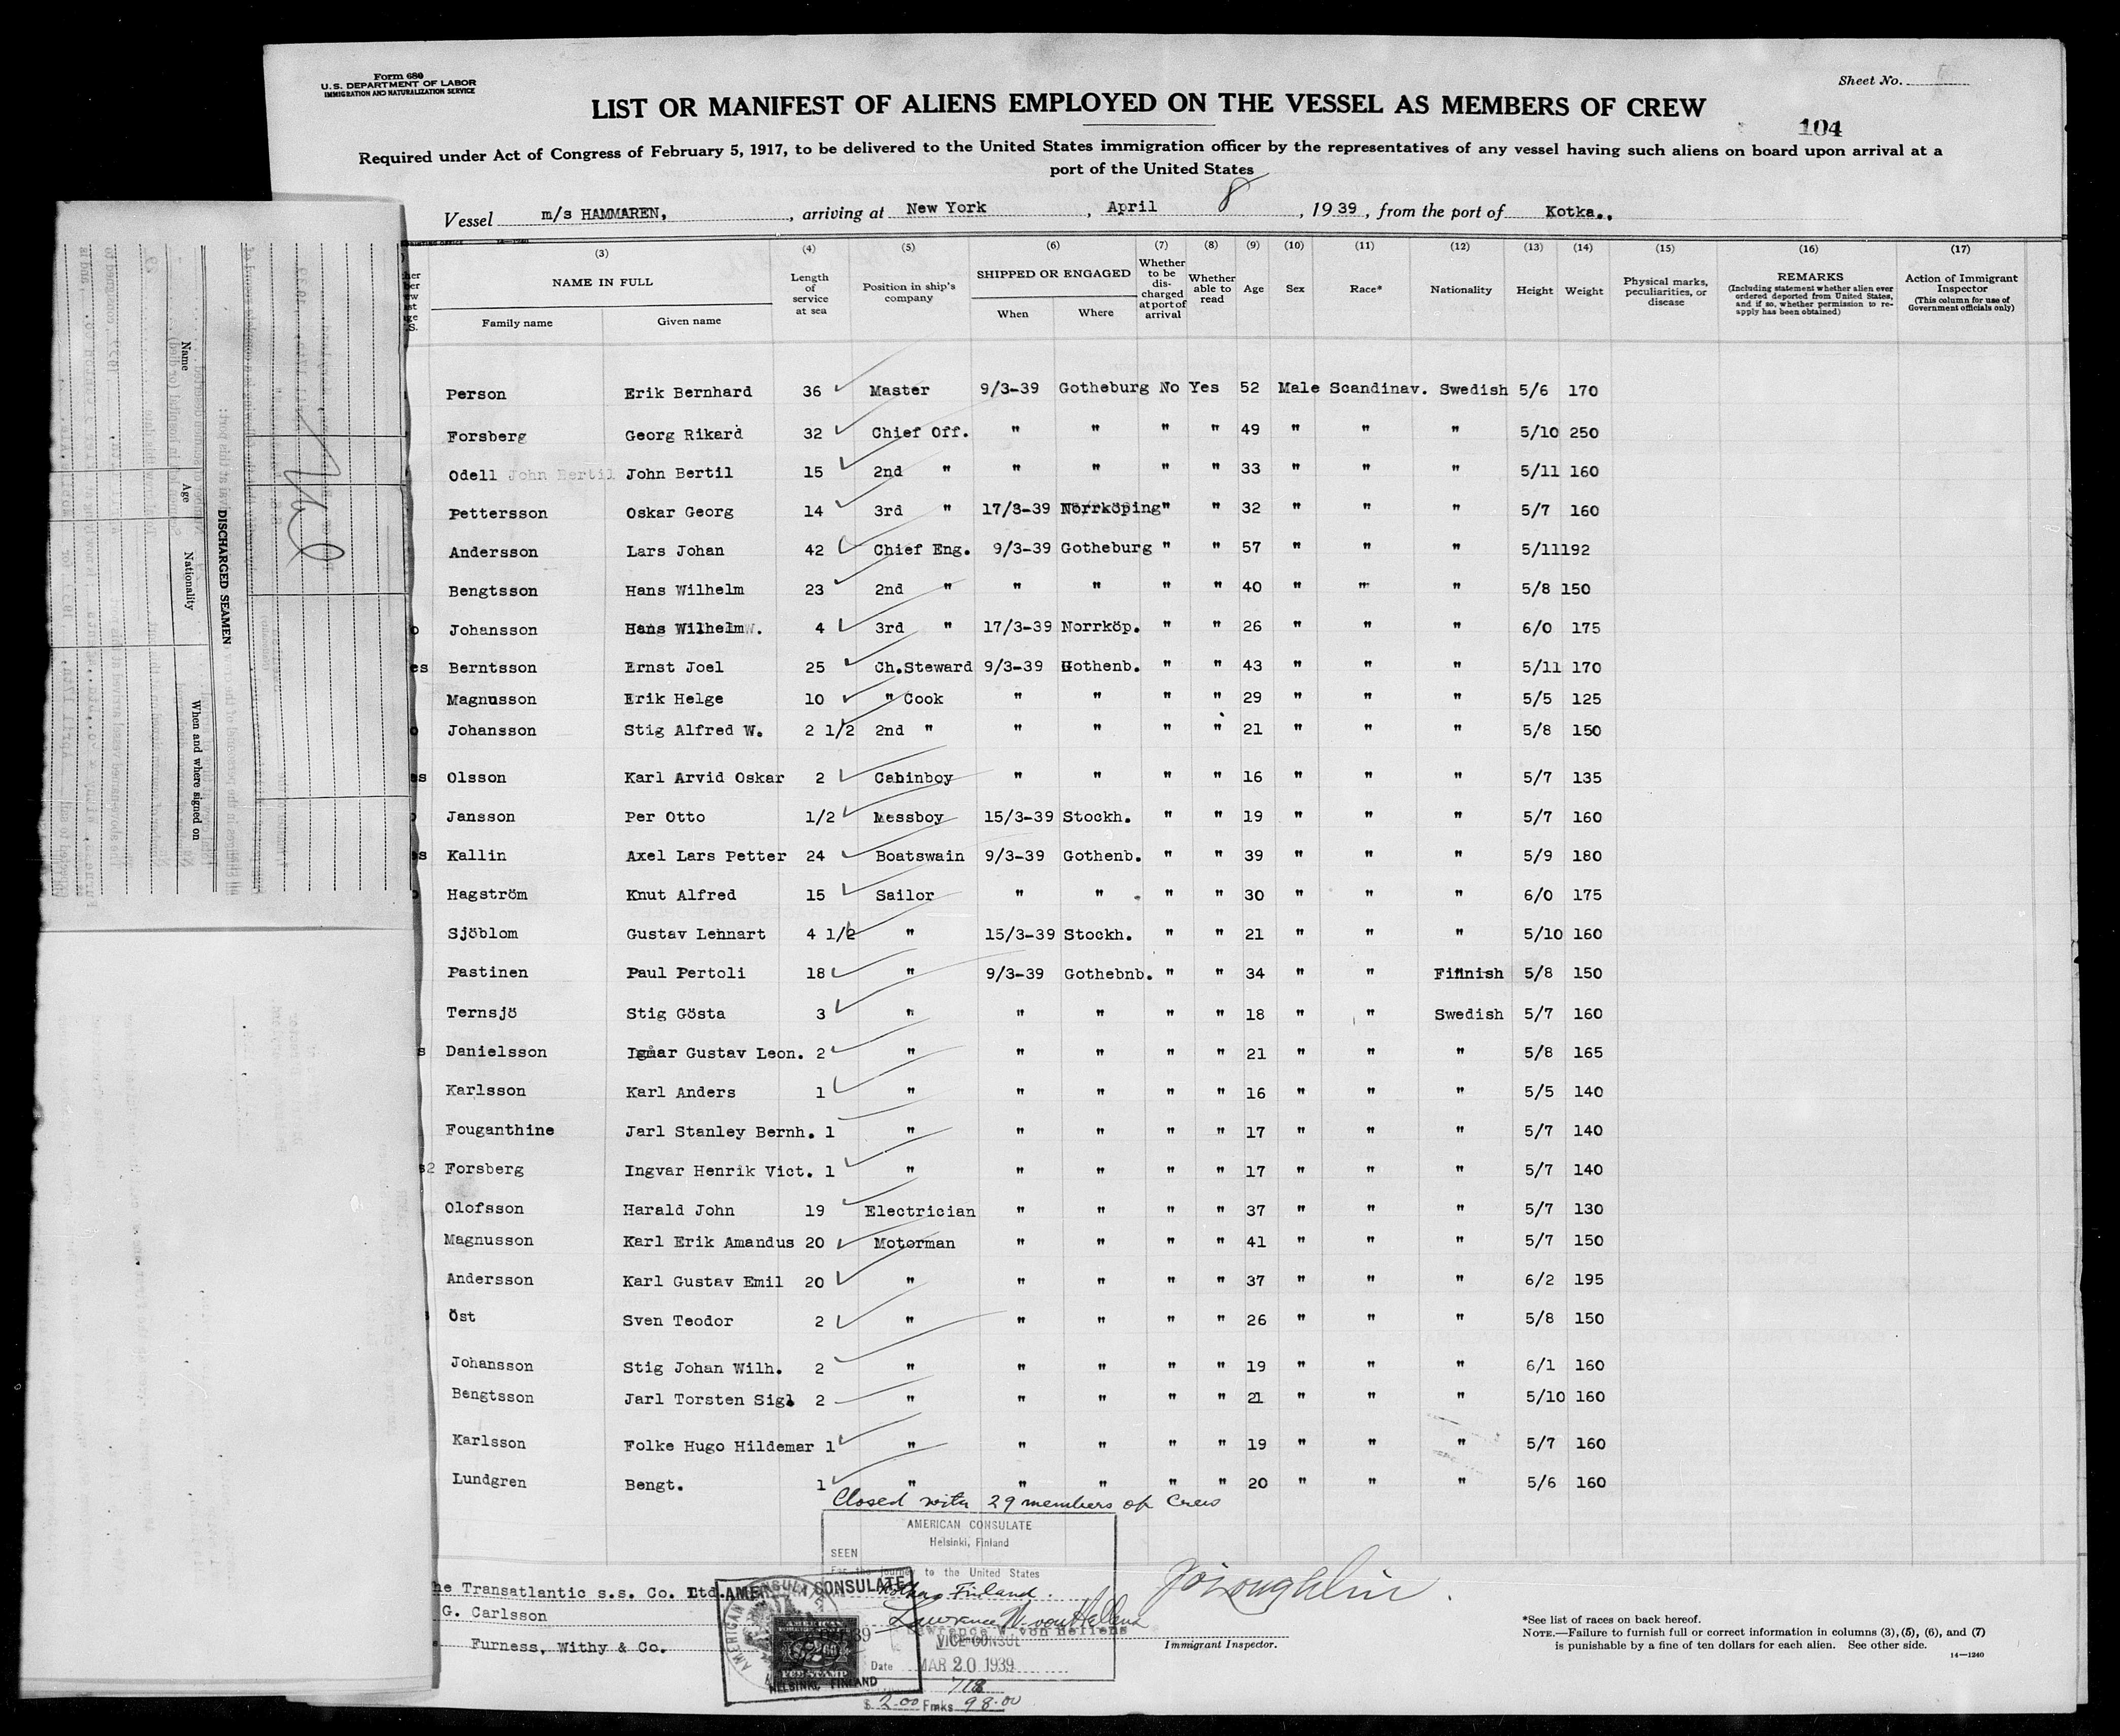 Form 680
U. S. DEPARTMENT OF LABOR
IMMIGRATION AND NATURALIZATION SERVICE
Sheet No.
LIST OR MANIFEST OF ALIENS EMPLOYED ON THE VESSEL AS MEMBERS OF CREW
104
Required under Act of Congress of February 5, 1917, to be delivered to the United States immigration officer by the representatives of any vessel having such aliens on board upon arrival at a
port of the United States
Vessel m/s HAMMAREN, , arriving at New York , April 8 , 1939 , from the port of Kotka.,
(3) (4) (5) (6) (7) (8) (9) (10) (11) (12) (13) (14) (15) (16) (17)
NAME IN FULL Length of service at sea Position in ship's company SHIPPED OR ENGAGED Whether to be discharged at port of arrival Whether able to read Age Sex Race* Nationality Height Weight Physical marks, peculiarities, or disease REMARKS (Including statement whether alien ever ordered deported from United States, and if so, whether permission to reapply has been obtained) Action of Immigrant Inspector (This column for use of Government officials only)
Family name Given name When Where
Person Erik Bernhard 36 Master 9/3-39 Gotheburg No Yes 52 Male Scandinav. Swedish 5/6 170
Forsberg Georg Rikard 32 Chief Off. " " " " 49 " " " 5/10 250
Odell John Bertil John Bertil 15 2nd " " " " " 33 " " " 5/11 160
Pettersson Oskar Georg 14 3rd " 17/3-39 Norrköping " " 32 " " " 5/7 160
Andersson Lars Johan 42 Chief Eng. 9/3-39 Gotheburg " " 57 " " " 5/11 192
Bengtsson Hans Wilhelm 23 2nd " " " " " 40 " " " 5/8 150
Johansson Hans Wilhelm W. 4 3rd " 17/3-39 Norrköp. " " 26 " " " 6/0 175
Berntsson Ernst Joel 25 Ch.Steward 9/3-39 Gothenb. " " 43 " " " 5/11 170
Magnusson Erik Helge 10 " Cook " " " " 29 " " " 5/5 125
Johansson Stig Alfred W. 2 1/2 2nd " " " " " 21 " " " 5/8 150
Olsson Karl Arvid Oskar 2 Cabinboy " " " " 16 " " " 5/7 135
Jansson Per Otto 1/2 Messboy 15/3-39 Stockh. " " 19 " " " 5/7 160
Kallin Axel Lars Petter 24 Boatswain 9/3-39 Gothenb. " " 39 " " " 5/9 180
Hagström Knut Alfred 15 Sailor " " " " 30 " " " 6/0 175
Sjöblom Gustav Lennart 4 1/2 " 15/3-39 Stockh. " " 21 " " " 5/10 160
Pastinen Paul Pertoli 18 " 9/3-39 Gothebnb. " " 34 " " Finnish 5/8 150
Ternsjö Stig Gösta 3 " " " " " 18 " " Swedish 5/7 160
Danielsson Gustav Leon. 2 " " " " " 21 " " " 5/8 165
Karlsson Karl Anders 1 " " " " " 16 " " " 5/5 140
Fouganthine Jarl Stanley Bernh. 1 " " " " " 17 " " " 5/7 140
Forsberg Ingvar Henrik Vict. 1 " " " " " 17 " " " 5/7 140
Olofsson Harald John 19 Electrician " " " " 37 " " " 5/7 130
Magnusson Karl Erik Amandus 20 Motorman " " " " 41 " " " 5/7 150
Andersson Karl Gustav Emil 20 " " " " " 37 " " " 6/2 195
Öst Sven Teodor 2 " " " " " 26 " " " 5/8 150
Johansson Stig Johan Wilh. 2 " " " " " 19 " " " 6/1 160
Bengtsson Jarl Torsten Sig. 2 " " " " " 21 " " " 5/10 160
Karlsson Folke Hugo Hildemar 1 " " " " " 19 " " " 5/7 160
Lundgren Bengt. 1 " " " " " 20 " " " 5/6 160
Closed with 29 members of Crew
AMERICAN CONSULATE
Helsinki, Finland
SEEN
For the journey to the United States
Kotka, Finland.
Lawrence W. von Hellens
VICE CONSUL
Date MAR 20 1939
718
$ 2.00 Fmks 98.00
AMERICAN CONSULATE
FEE STAMP
HELSINKI, FINLAND
he Transatlantic s.s. Co. Ltd.
G. Carlsson
Furness, Withy & Co.
Immigrant Inspector.
*See list of races on back hereof.
NOTE.—Failure to furnish full or correct information in columns (3), (5), (6), and (7)
is punishable by a fine of ten dollars for each alien. See other side.
14—1240
DISCHARGED SEAMEN
Name Age Nationality When and where signed on